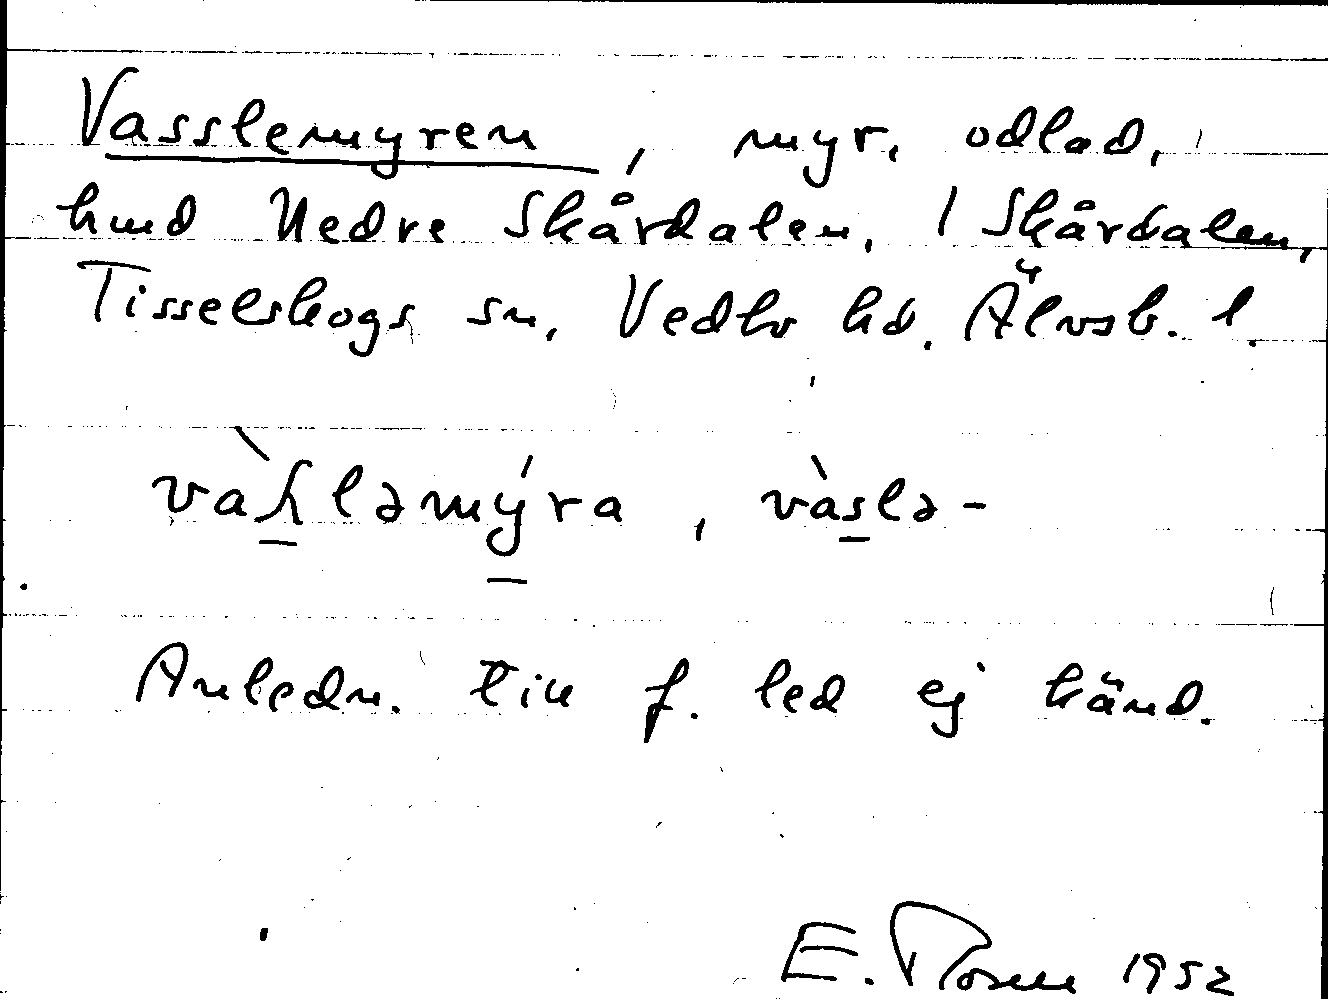 Vasslemyren, myr, odlad,
hmd Nedre Skårdalen, 1 Skårdalen,
Tisselskogs sn, Vedbo hd. Älvsb. l.
vàɧləmýra, vàslə-
Anledn. till f. led ej känd.
E. 1952